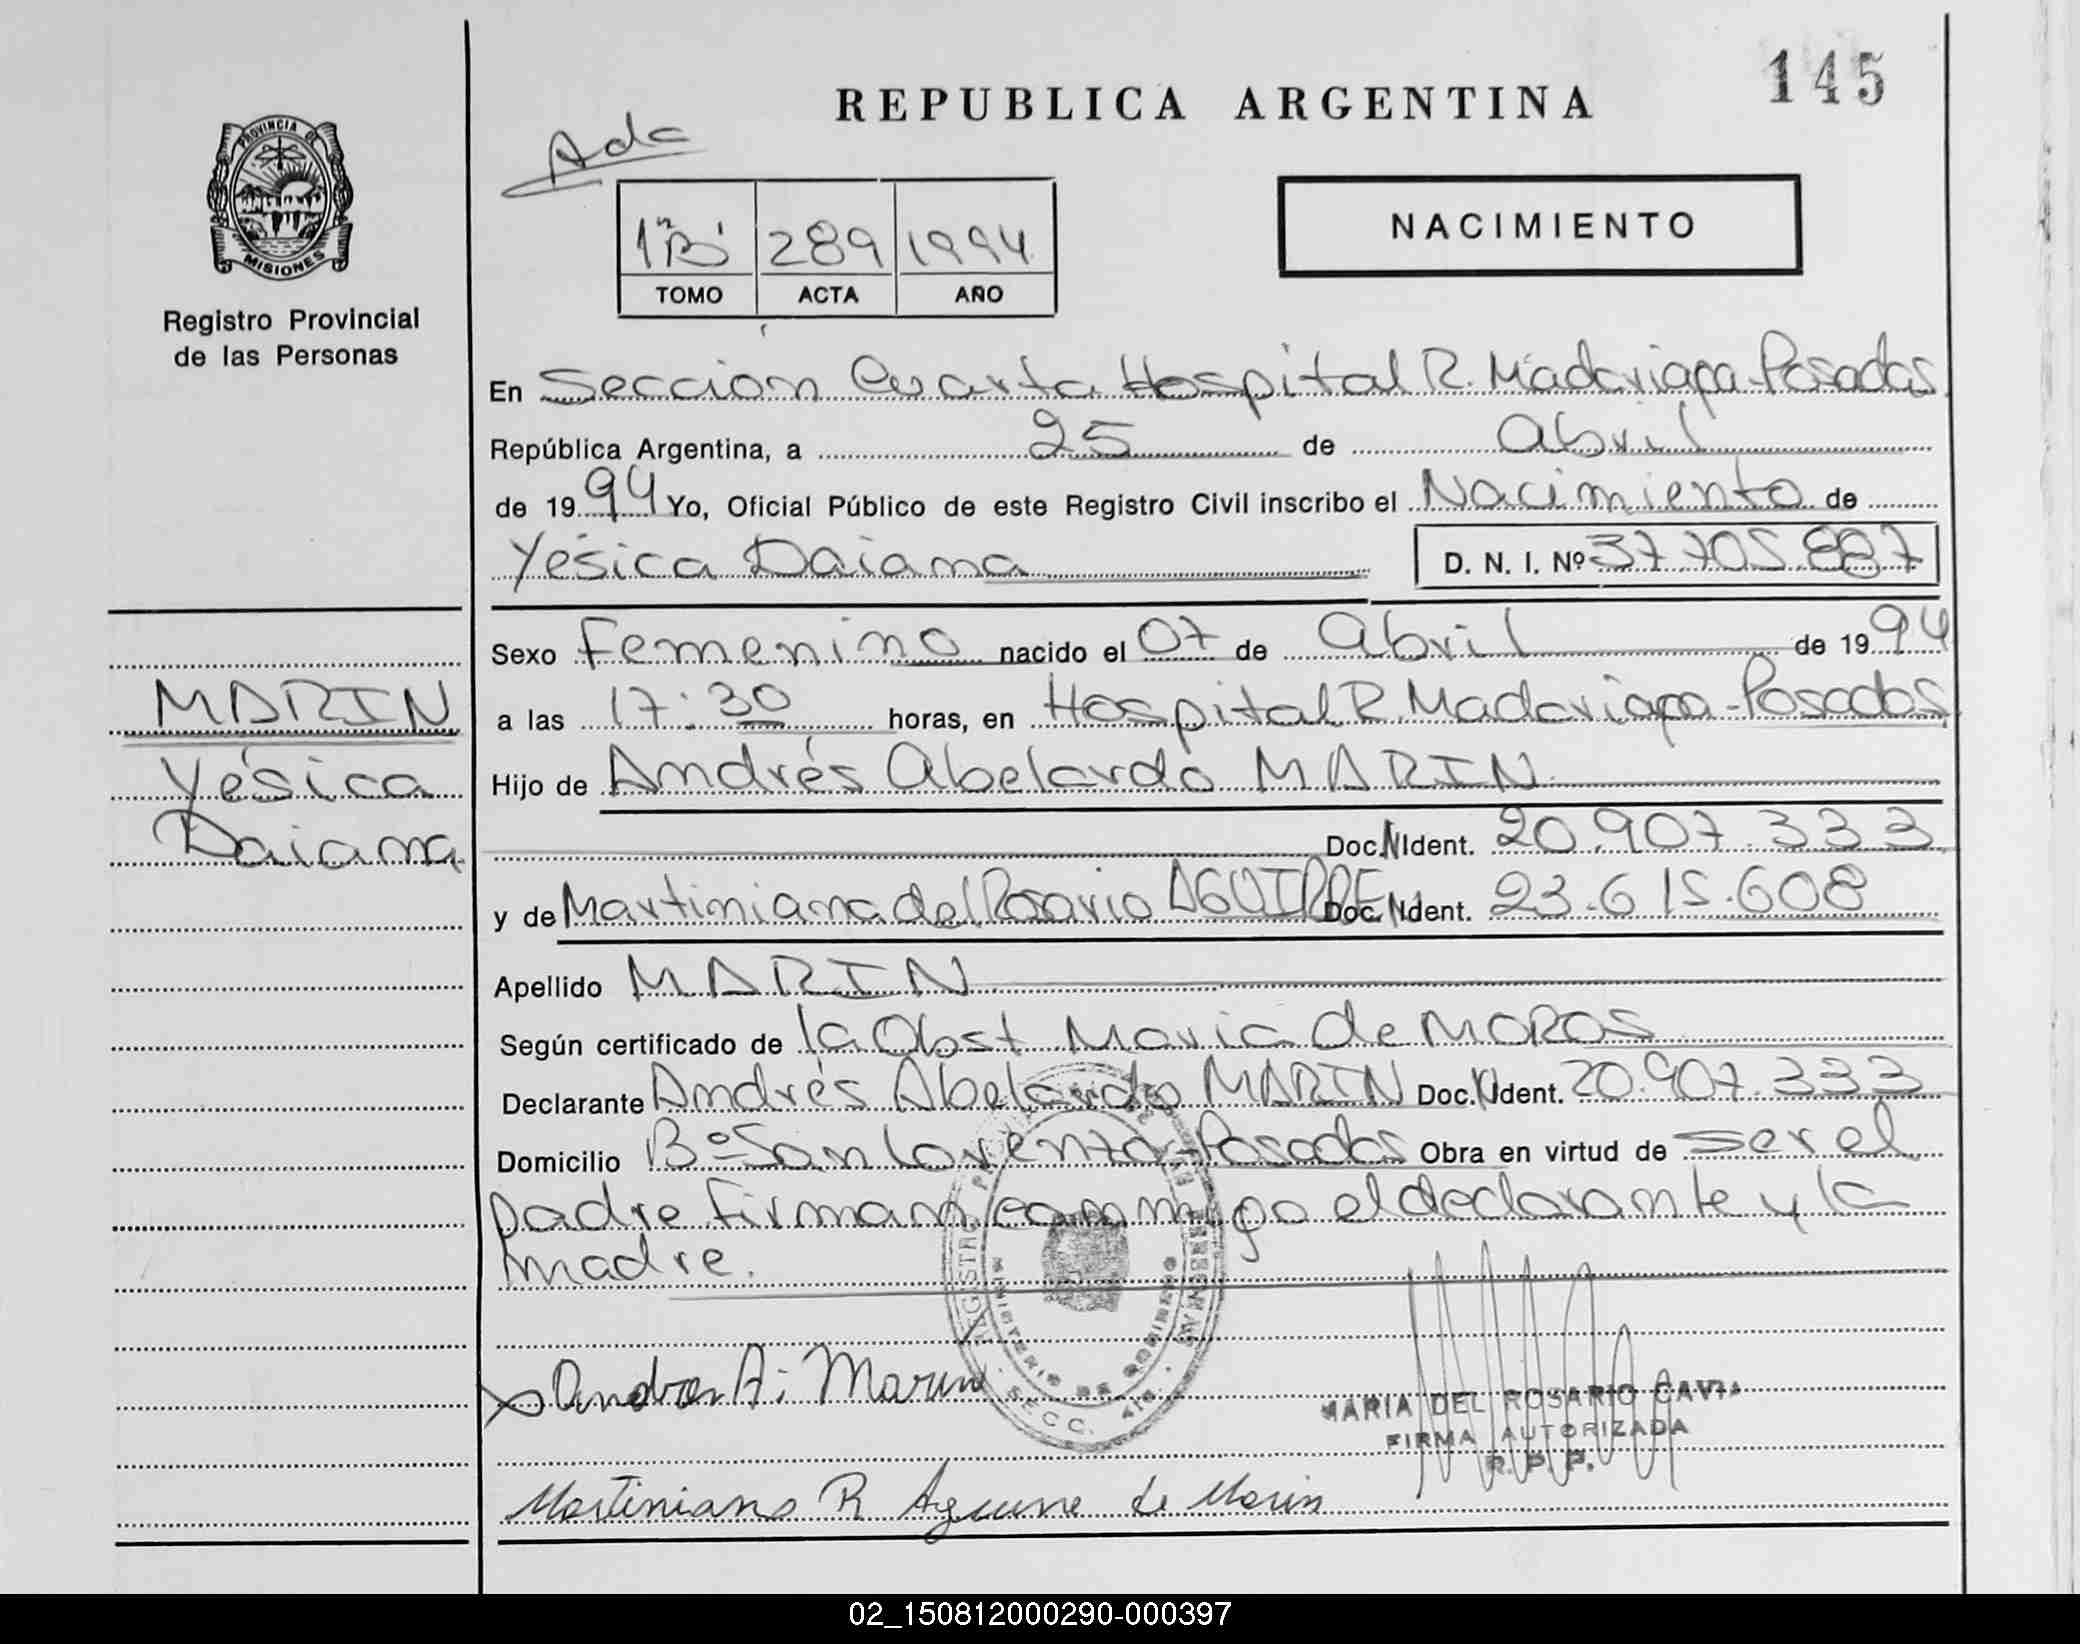 145
REPUBLICA ARGENTINA
PROVINCIA DE
MISIONES
Registro Provincial
de las Personas
NACIMIENTO
1ºB 289 1994
TOMO ACTA AÑO
En Sección Cuarta Hospital R. Madariaga-Posadas
República Argentina, a 25 de abril
de 1994 Yo, Oficial Público de este Registro Civil inscribo el Nacimiento de
Yésica Daiana D. N. I. Nº 37.705.887
Sexo Femenino nacido el 07 de abril de 1994
a las 17:30 horas, en Hospital R. Madariaga-Posadas
Hijo de Andrés Abelardo MARIN
Doc.N.Ident. 20.907.333
y de Martiniana del Rosario AGUIRRE Doc.N.Ident. 23.615.608
Apellido MARIN
Según certificado de la Obst Maria de MOROS
Declarante Andrés Abelardo MARIN Doc.N.Ident. 20.907.333
Domicilio Bº San Lorenzo-Posadas Obra en virtud de ser el
padre. Firman conmigo el declarante y la
madre.
MARIN
Yésica
Daiana
MINISTERIO DE GOBIERNO
SECC. 4ta.
Andres A. Marin
MARIA DEL ROSARIO CAVIA
FIRMA AUTORIZADA
R. P. P.
Martiniana R Aguirre de Marin
02_150812000290-000397